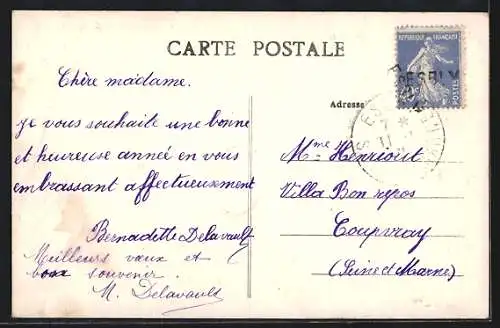 CARTE POSTALE
REPUBLIQUE FRANÇAISE
POSTES
Chère madame.
Je vous souhaite une bonne
et heureuse année en vous
embrassant affectueusement
Bernadette Delavault
Meilleurs vœux et
bon souvenir.
M. Delavault
Adresse
Mme Henriout
Villa Bon repos
Coupvray
(Seine et Marne)